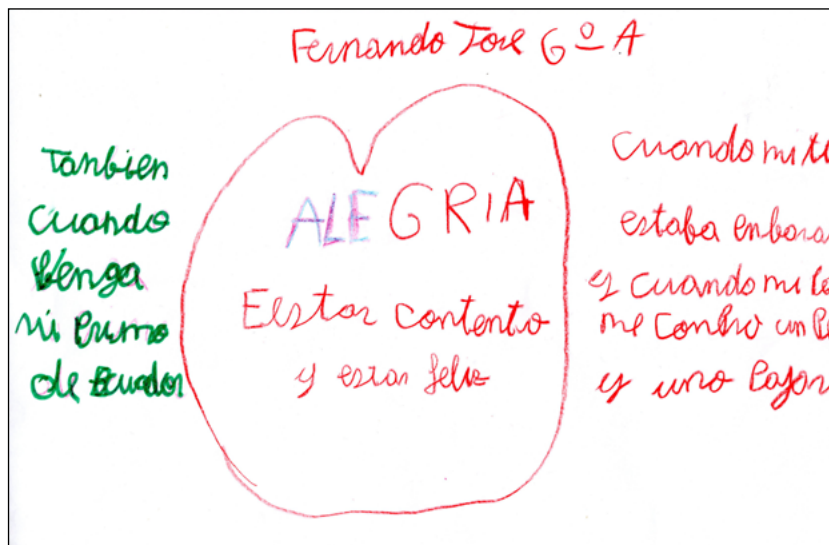 Fernando Jose 6º A
Tanbien
cuando
benga
mi primo
de Ecuador
ALEGRIA
Eestar contento
y estar feliz
cuando mi
estaba
y cuando mi
me conpro un
y uno